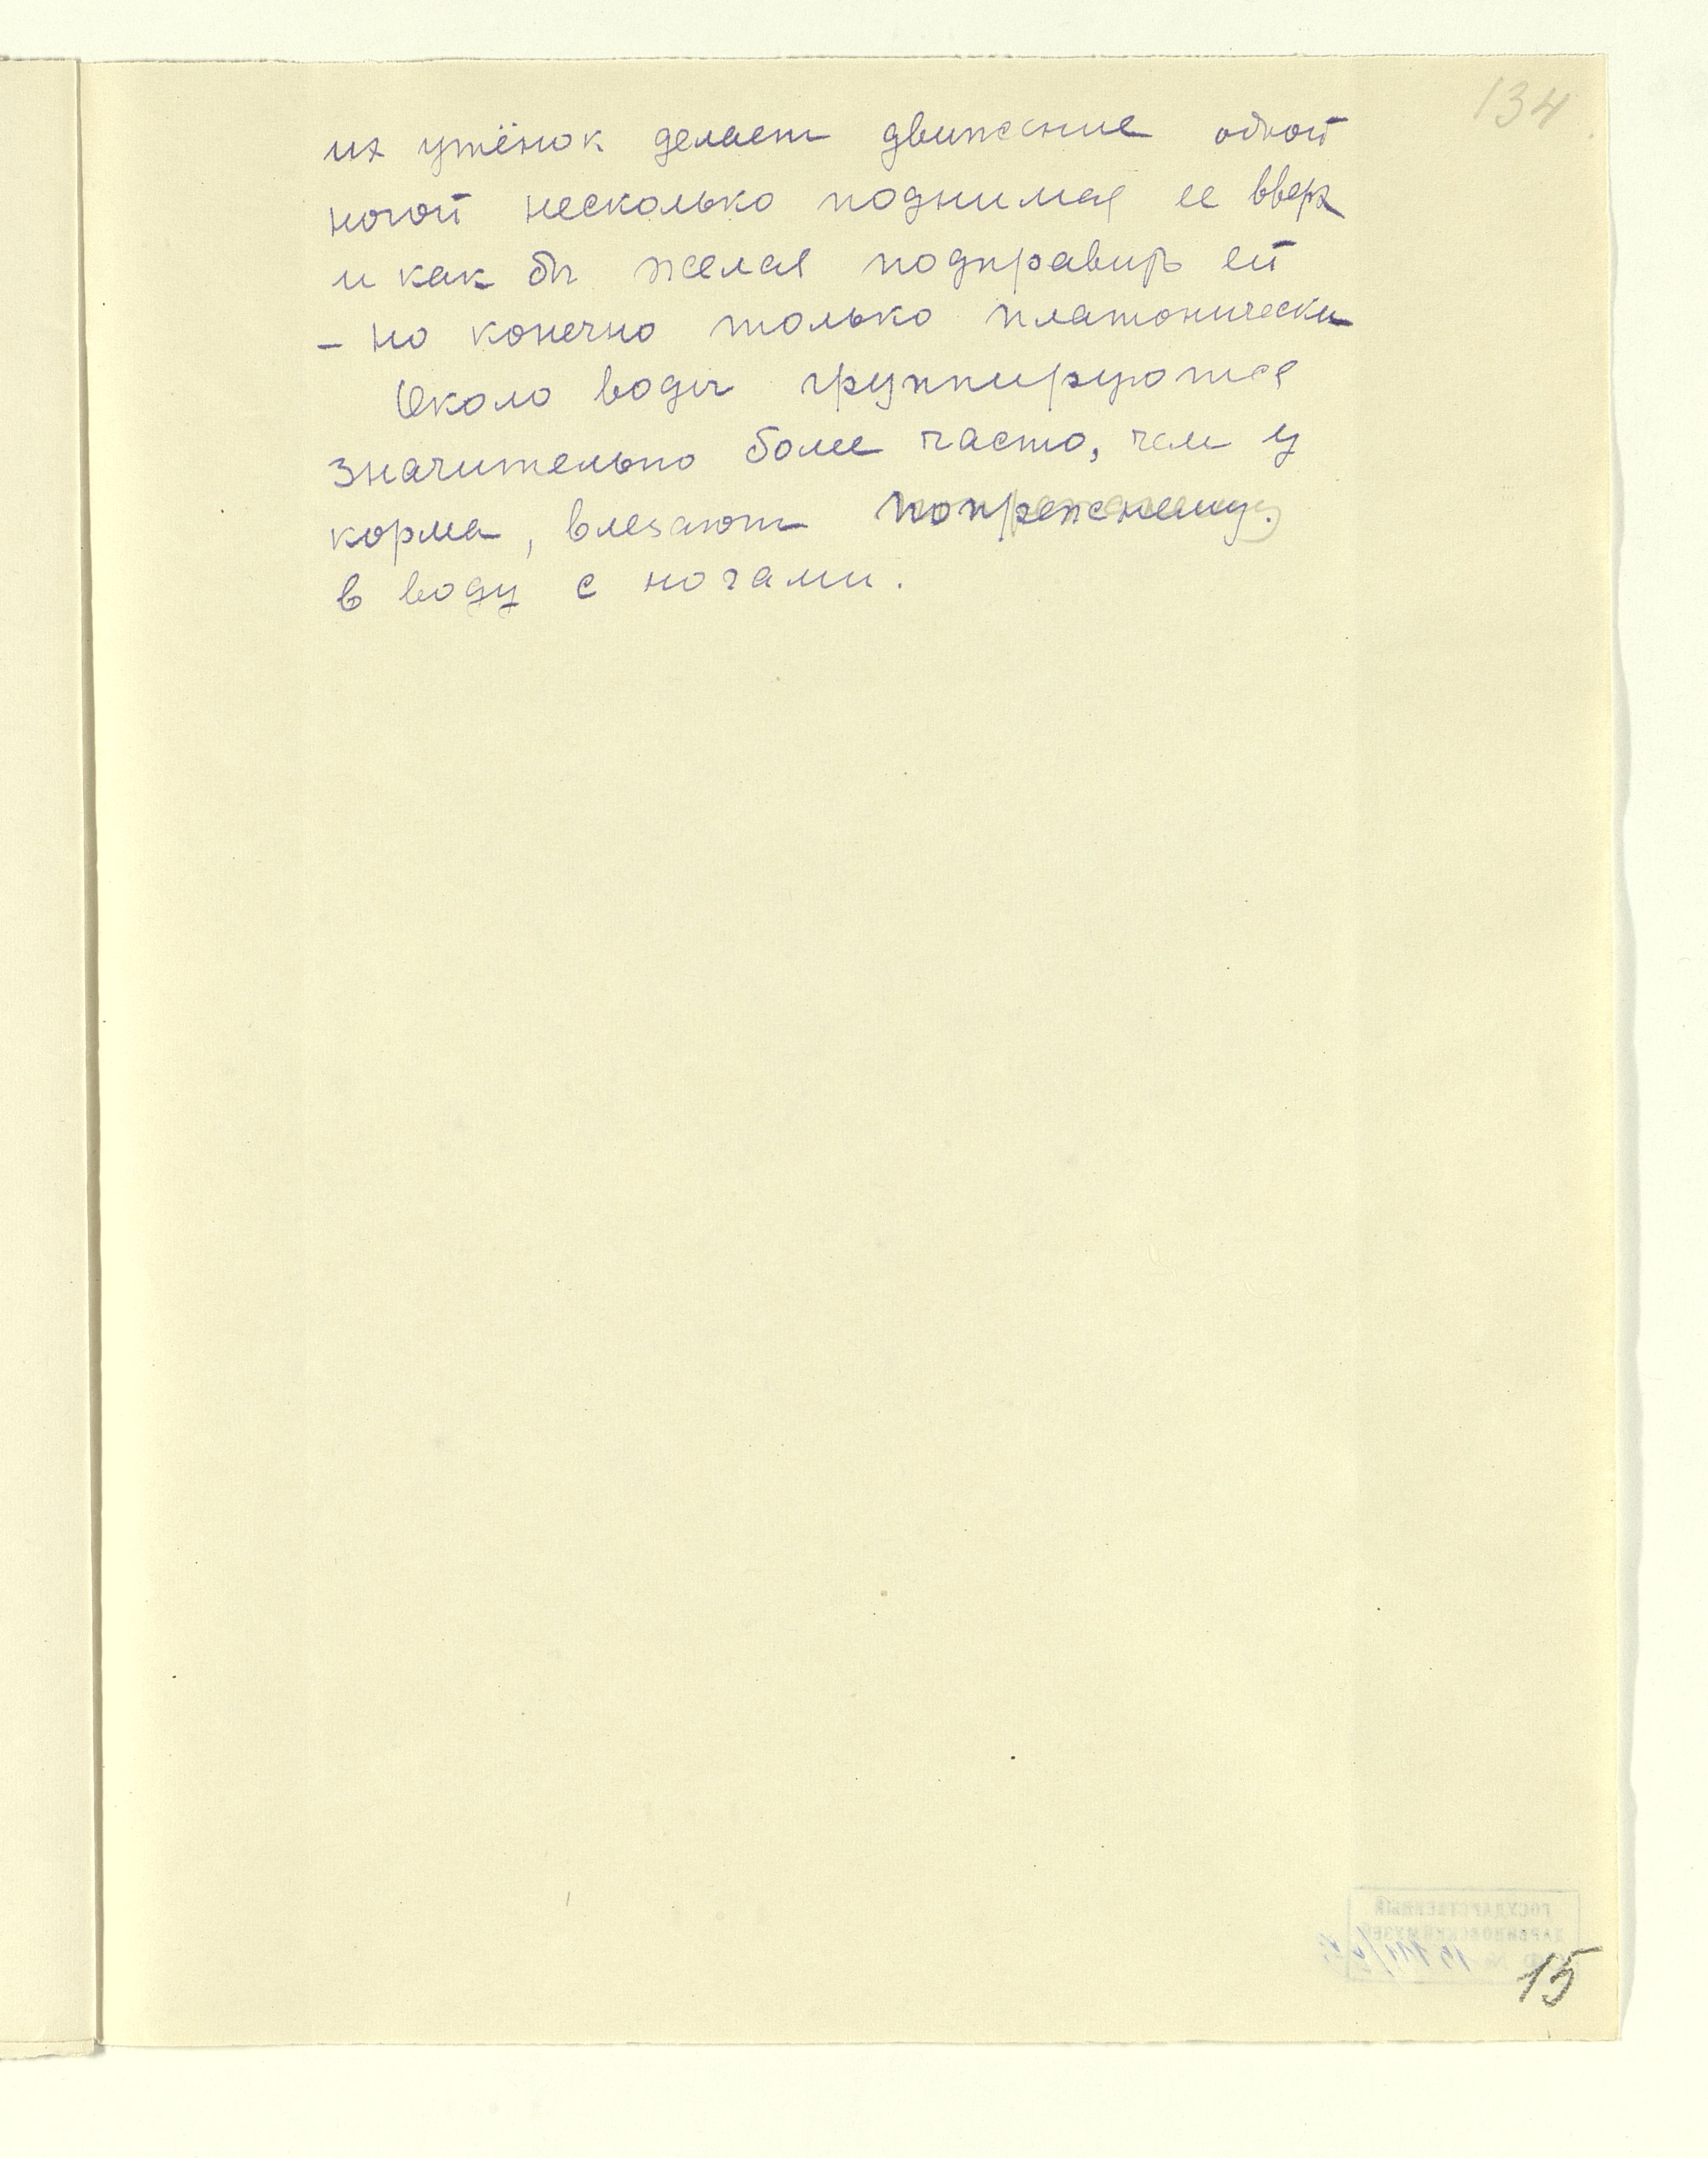 134
их утёнок делает движение одной
ногой несколько поднимая ее вверх
и как бы желая подправить ей
– но конечно только платонически
Около воды группируются
значительно более часто, чем у
корма, влезают попрежнему
в воду с ногами.
ГОСУДАРСТВЕННЫЙ
ДАРВИНОВСКИЙ МУЗЕЙ
15